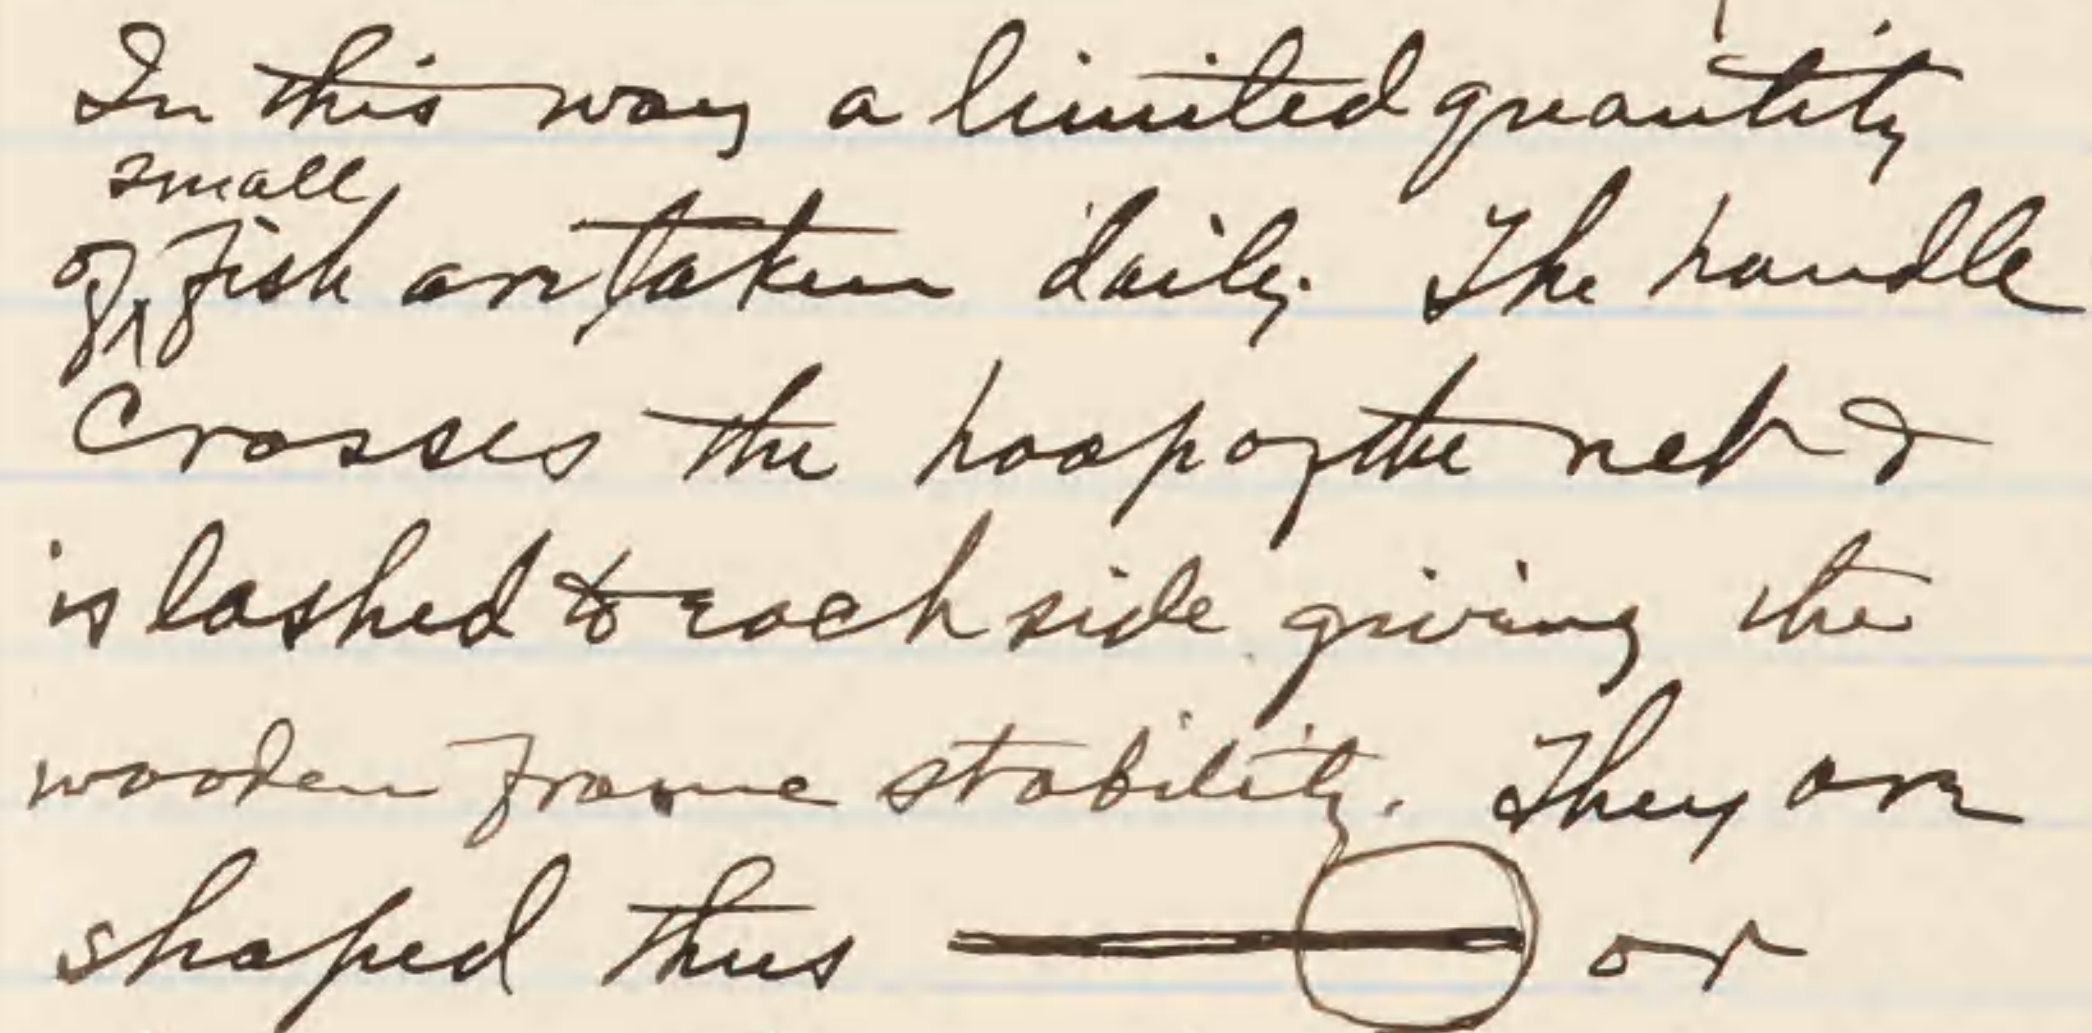 In this way a limited quantity
small
of fish are taken daily. The handle
Crosses the hoop of the net &
is lashed to each side giving the
wooden frame stability. They are
shaped thus or